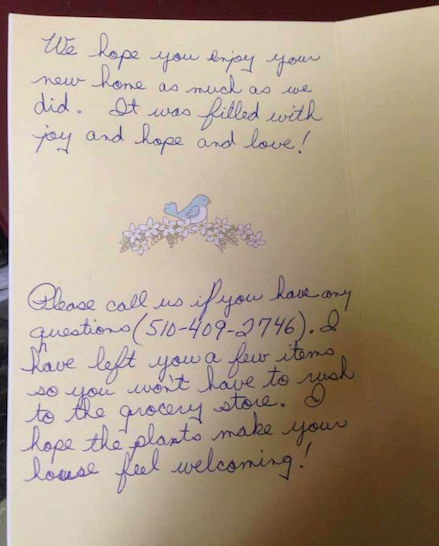 We hope you enjoy your
new home as much as we
did. It was filled with
joy and hope and love!
Please call us if you have any
questions (510-409-2746). I
have left you a few items
so you won't have to rush
to the grocery store. I
hope the plants make your
house feel welcoming!